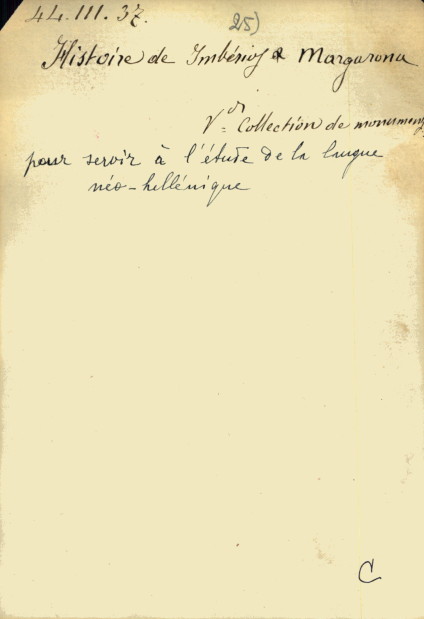 44.III.37.
25)
Histoire de Imbérios & Margarona
Vᵈʳ Collection de monumens
pour servir à l'étude de la langue
néo-hellénique
C